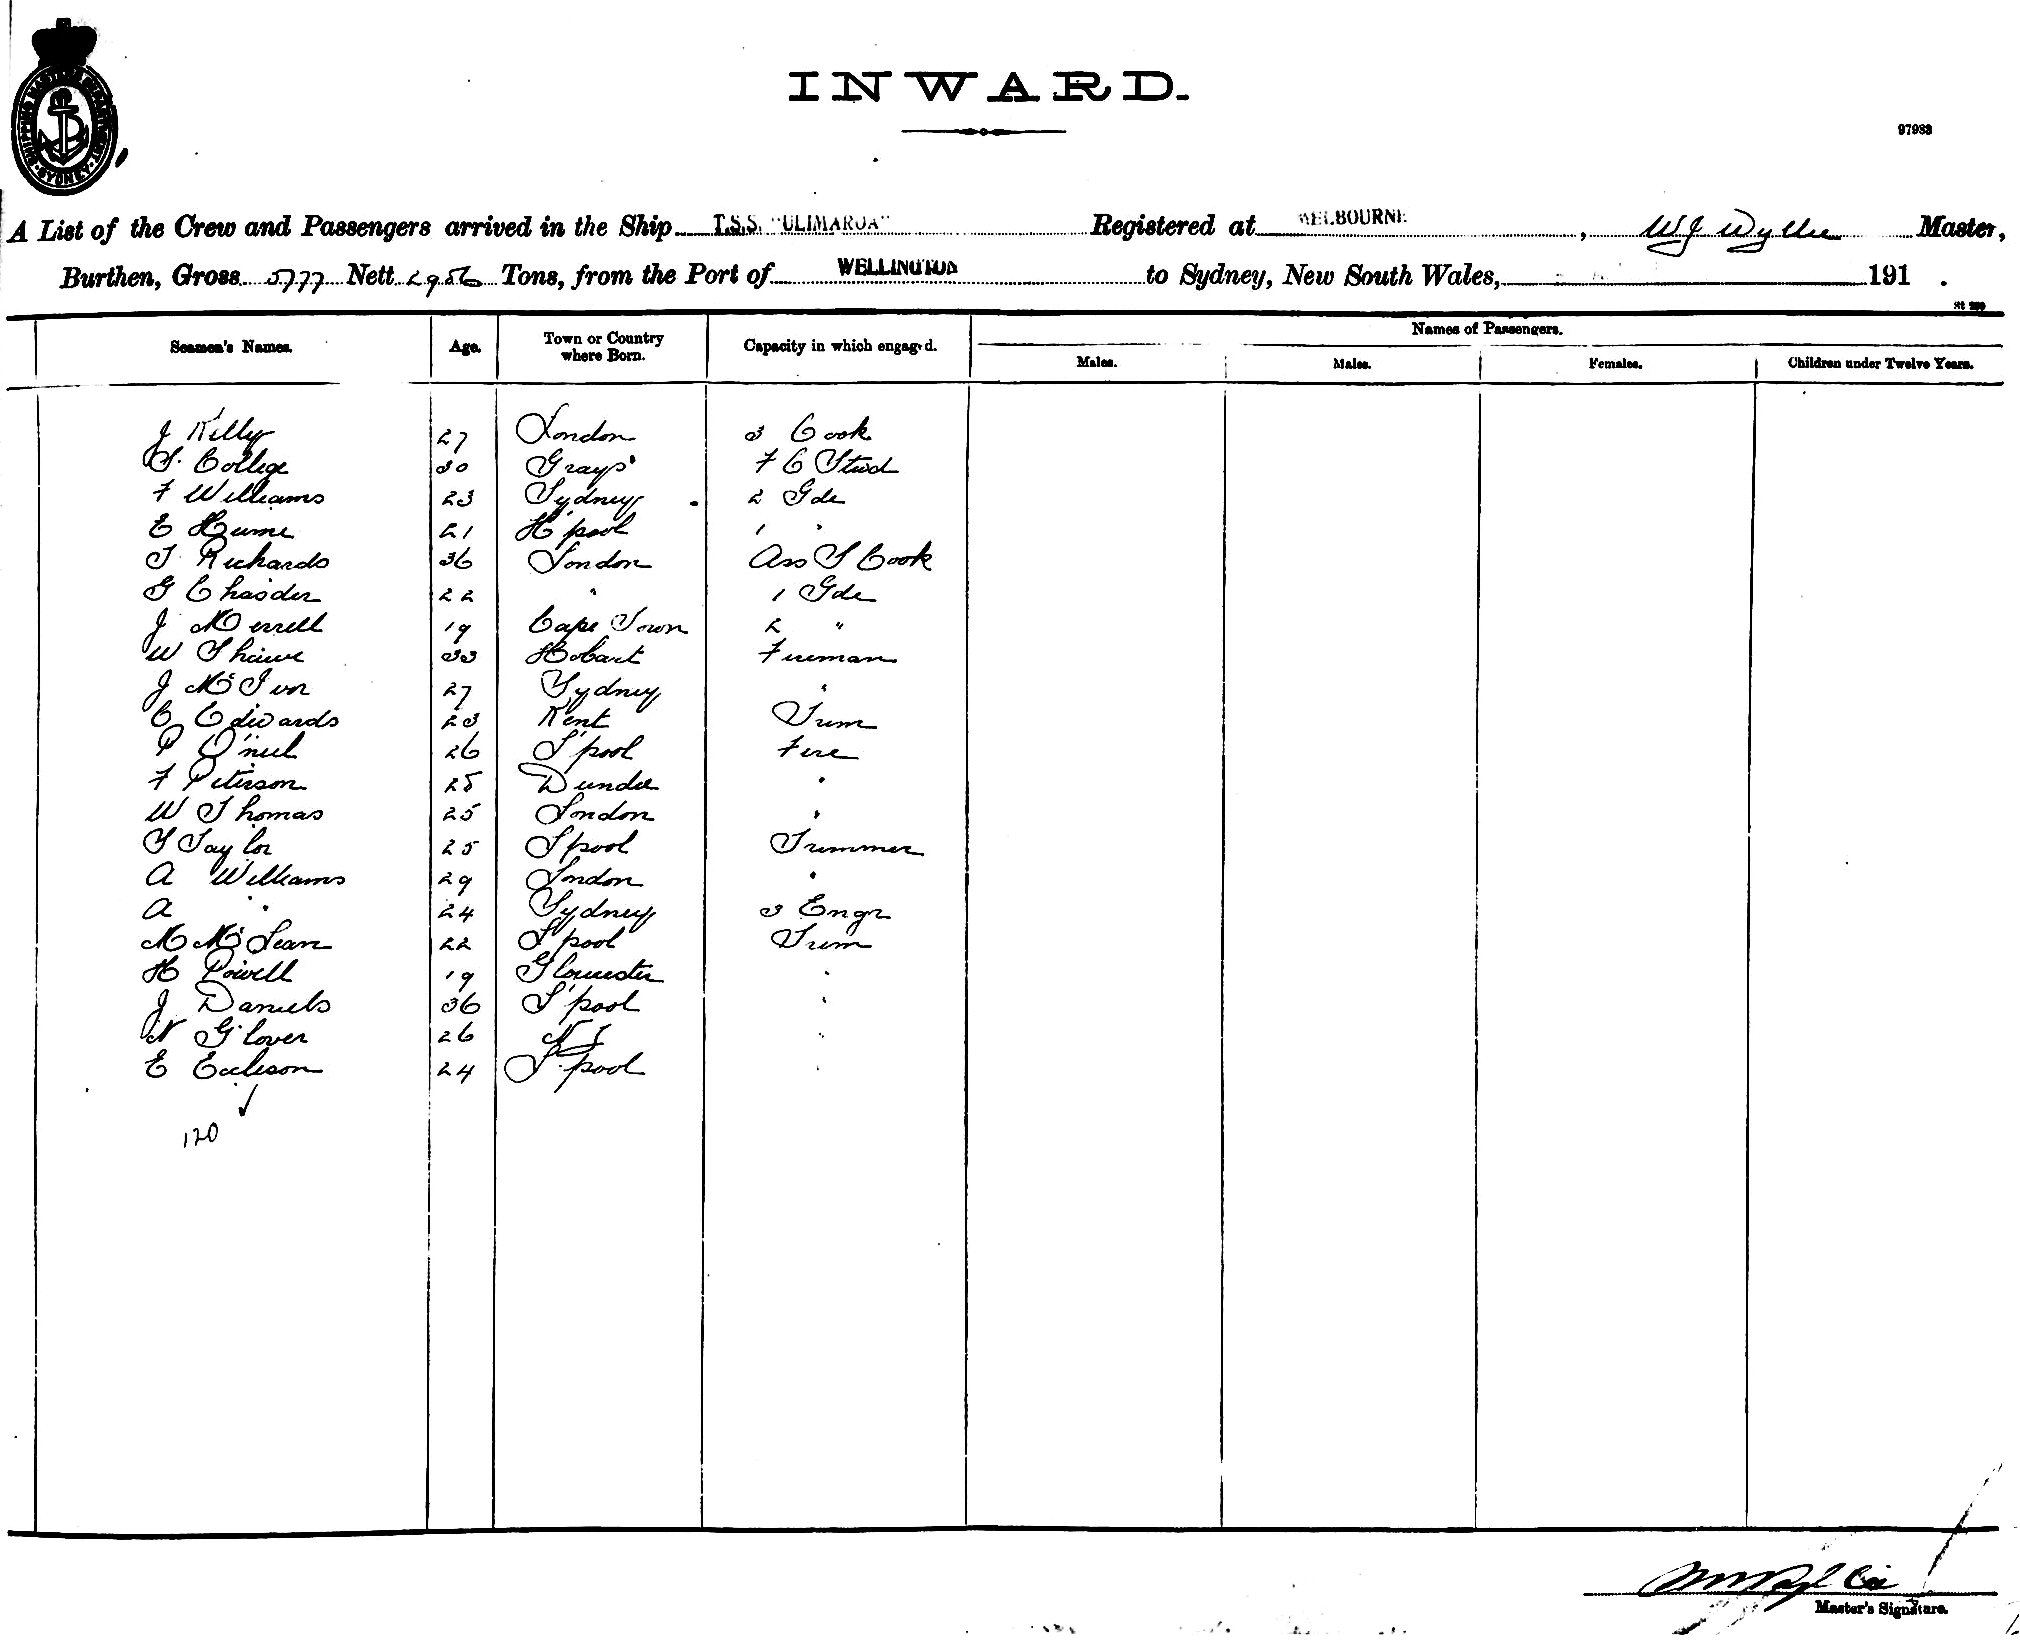 SHIPPING MASTERS DEPARTMENT SYDNEY
INWARD.
97983
A List of the Crew and Passengers arrived in the Ship T.S.S. "ULIMAROA" Registered at MELBOURNE, W J Wyllie Master,
Burthen, Gross 5777 Nett 2956 Tons, from the Port of WELLINGTON to Sydney, New South Wales, 191 .
Names of Passengers.
Seamen's Names. Age. Town or Country where Born. Capacity in which engaged. Males. Males. Females. Children under Twelve Years.
J Kelly 27 London 3 Cook
S. College 30 Grays F C Stwd
F Williams 23 Sydney 2 Gde
E Hume 21 H'pool 1 "
T Richards 36 London Ass S Cook
G 22 " 1 Gde
J Merrell 19 Cape Town 2 "
W Shaw 33 Hobart Fireman
J McIvor 27 Sydney "
C Edwards 23 Kent Trim
P O'neil 26 L'pool Fire
F Peterson 25 Dundee "
W Thomas 25 London "
T Taylor 25 L'pool Trimmer
A Williams 29 London "
A " 24 Sydney 3 Engr
M McLean 22 L'pool Trim
H Powell 19 Gloucester "
J Daniels 36 L'pool "
N Glover 26 "
E Eccleson 24 L'pool "
120
Master's Signature.